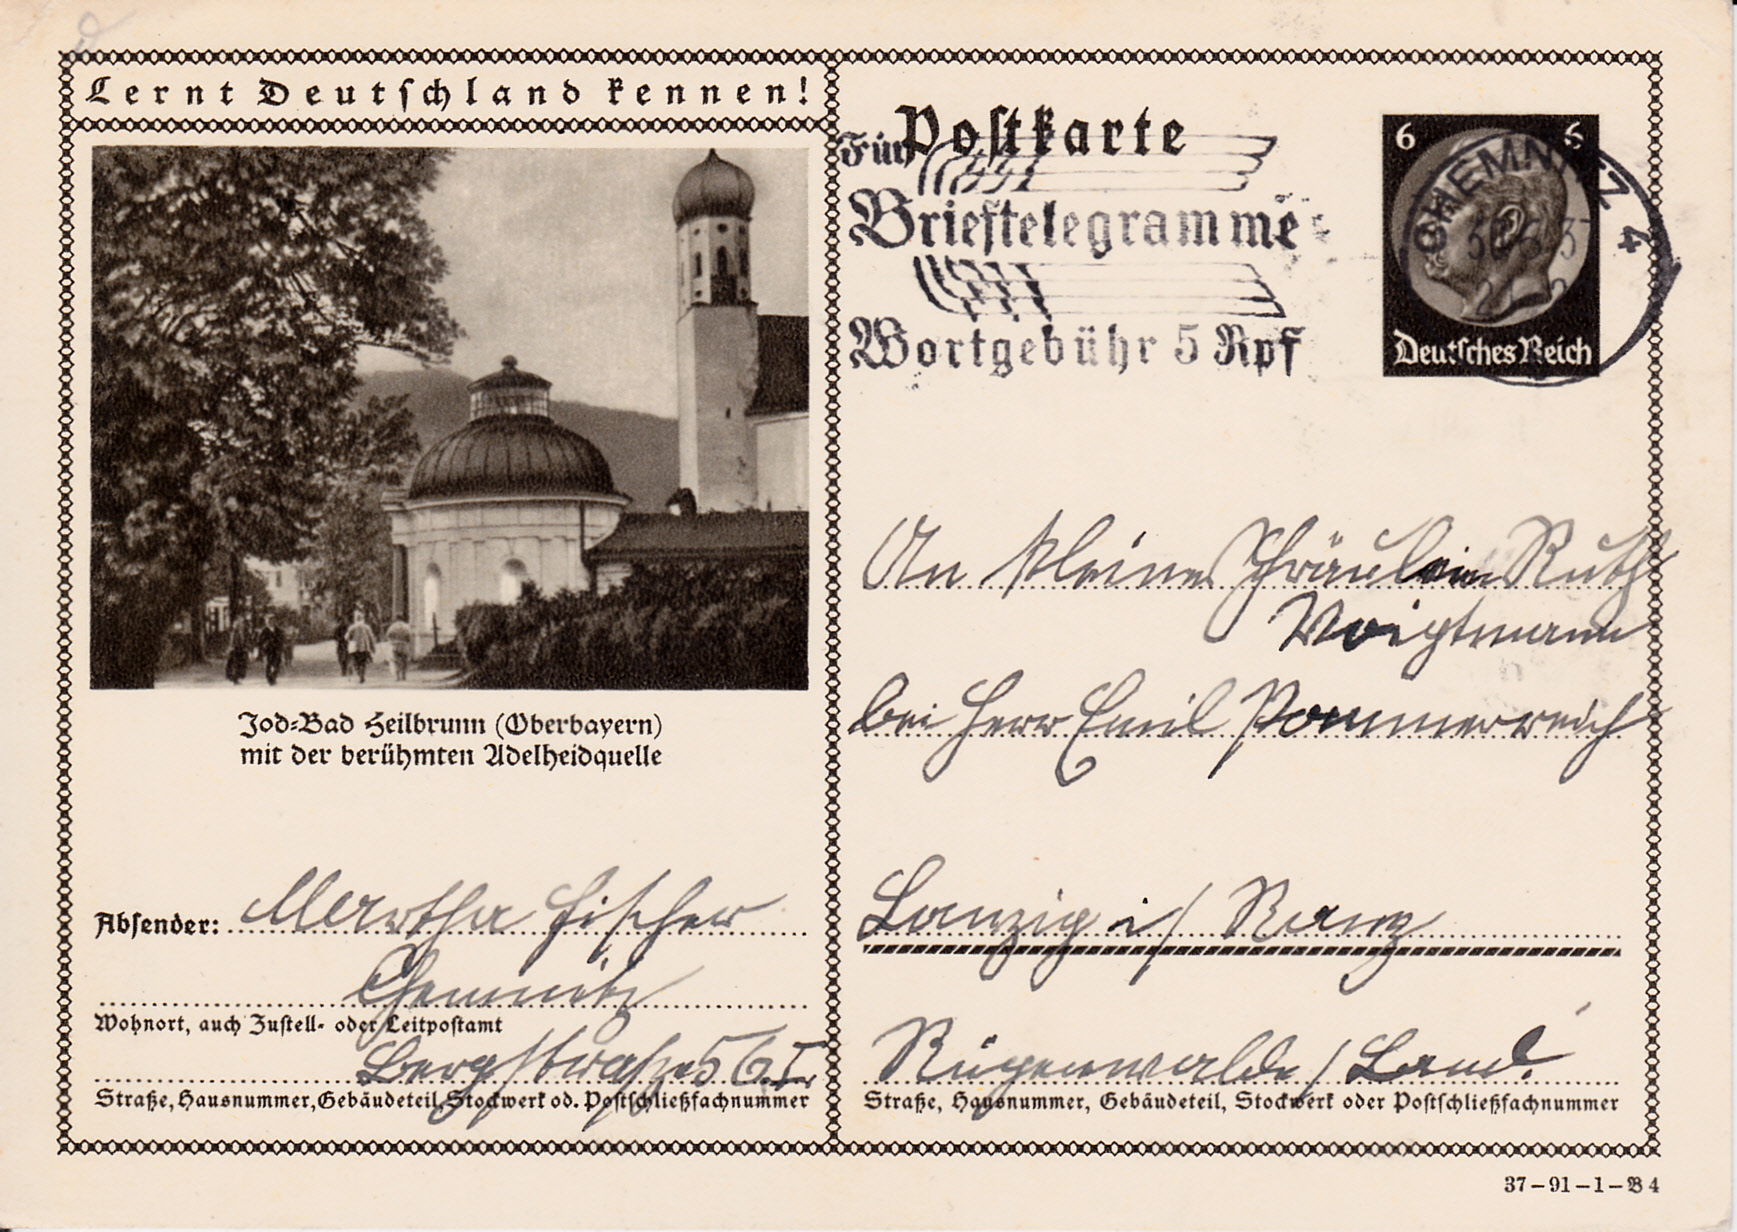 Lernt Deutschland kennen!
Jod-Bad Heilbrunn (Oberbayern)
mit der berühmten Adelheidquelle
Absender: Martha Fischer
Chemnitz
Wohnort, auch Zustell- oder Leitpostamt
Bergstraße 56 I.
Straße, Hausnummer, Gebäudeteil, Stockwerk od. Postschließfachnummer
Postkarte
Für
Brieftelegramme
Wortgebühr 5 Rpf
6 6
Deutsches Reich
CHEMNITZ 4
An kleines Fräulein Ruth
Voigtmann
bei Herr Emil Pommerreich
Lanzig i/
Rügenwalde / Land.
Straße, Hausnummer, Gebäudeteil, Stockwerk oder Postschließfachnummer
37-91-1-B 4